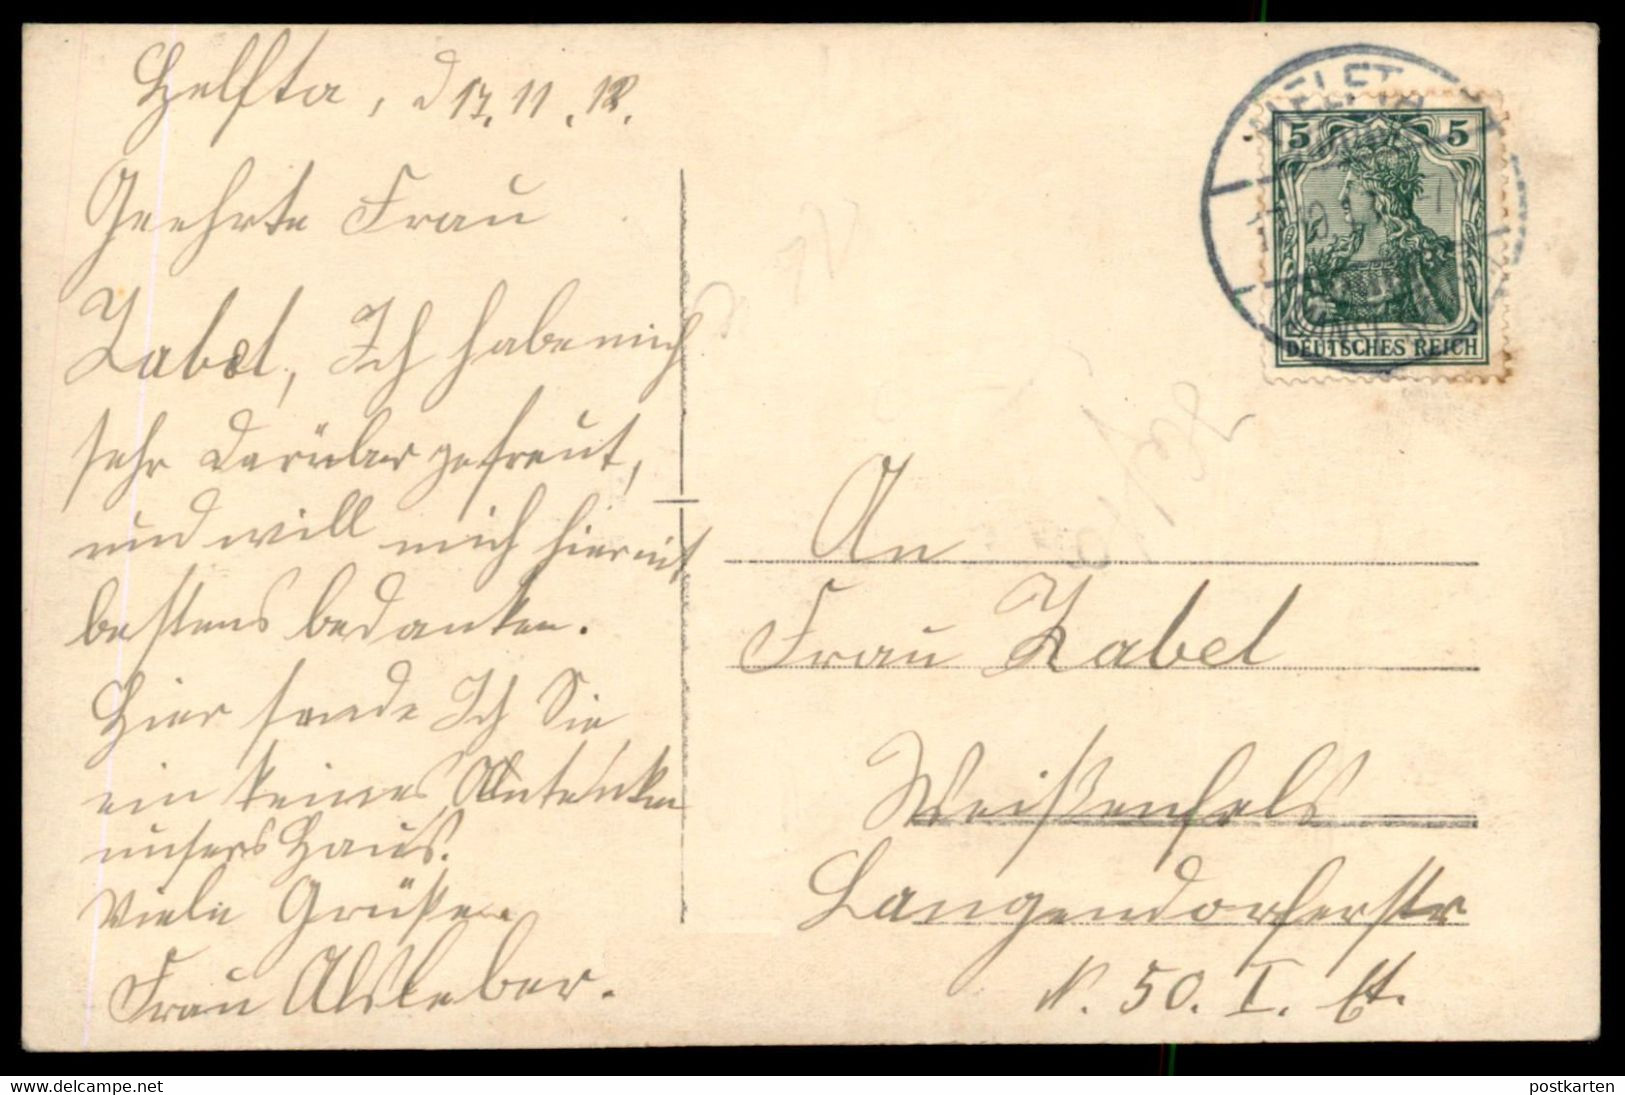 Helfta, d 17.11.12.
Geehrte Frau
Zabel, Ich habe mich
sehr darüber gefreut,
und will mich hiermit
bestens bedanken.
Hier sende Ich Sie
ein keines Antenken
unsers Haus.
Viele Grüße.
Frau Alsleber.
HELFTA
5 5
DEUTSCHES REICH
An
Frau Zabel
Weißenfels
Langendorferstr
N. 50. I. Et.
www.delcampe.net
postkarten